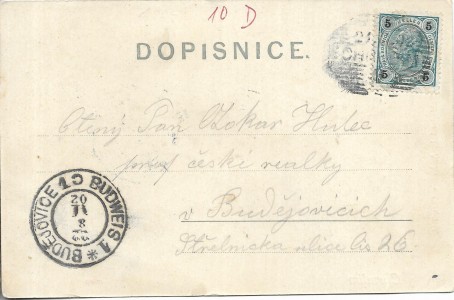 10 D
DOPISNICE.
5 5
5 5
Ctěný Pan Otokar Hulec
prof české realky
v Budějovicích
Střelnická ulice čís 26
BUDĚJOVICE 1 BUDWEIS 1 *